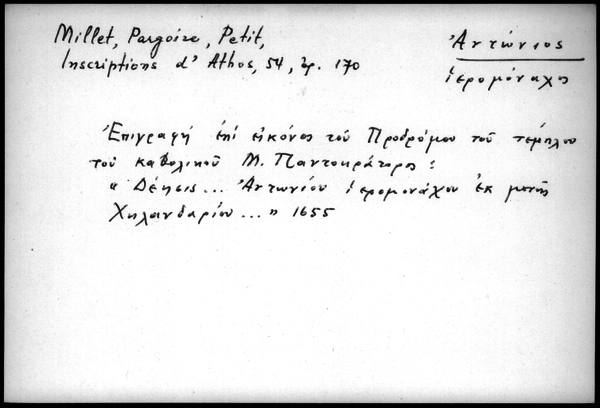 Millet, Pargoire, Petit,
Inscriptions d'Athos, 54, ἀρ. 170
Ἀντώνιος
ἱερομόναχος
Ἐπιγραφή ἐπί εἰκόνος τοῦ Προδρόμου τοῦ τέμπλου
τοῦ καθολικοῦ Μ. Παντοκράτορος:
"Δέησις... Ἀντωνίου ἱερομονάχου ἐκ μονῆς
Χηλανδαρίου..." 1655